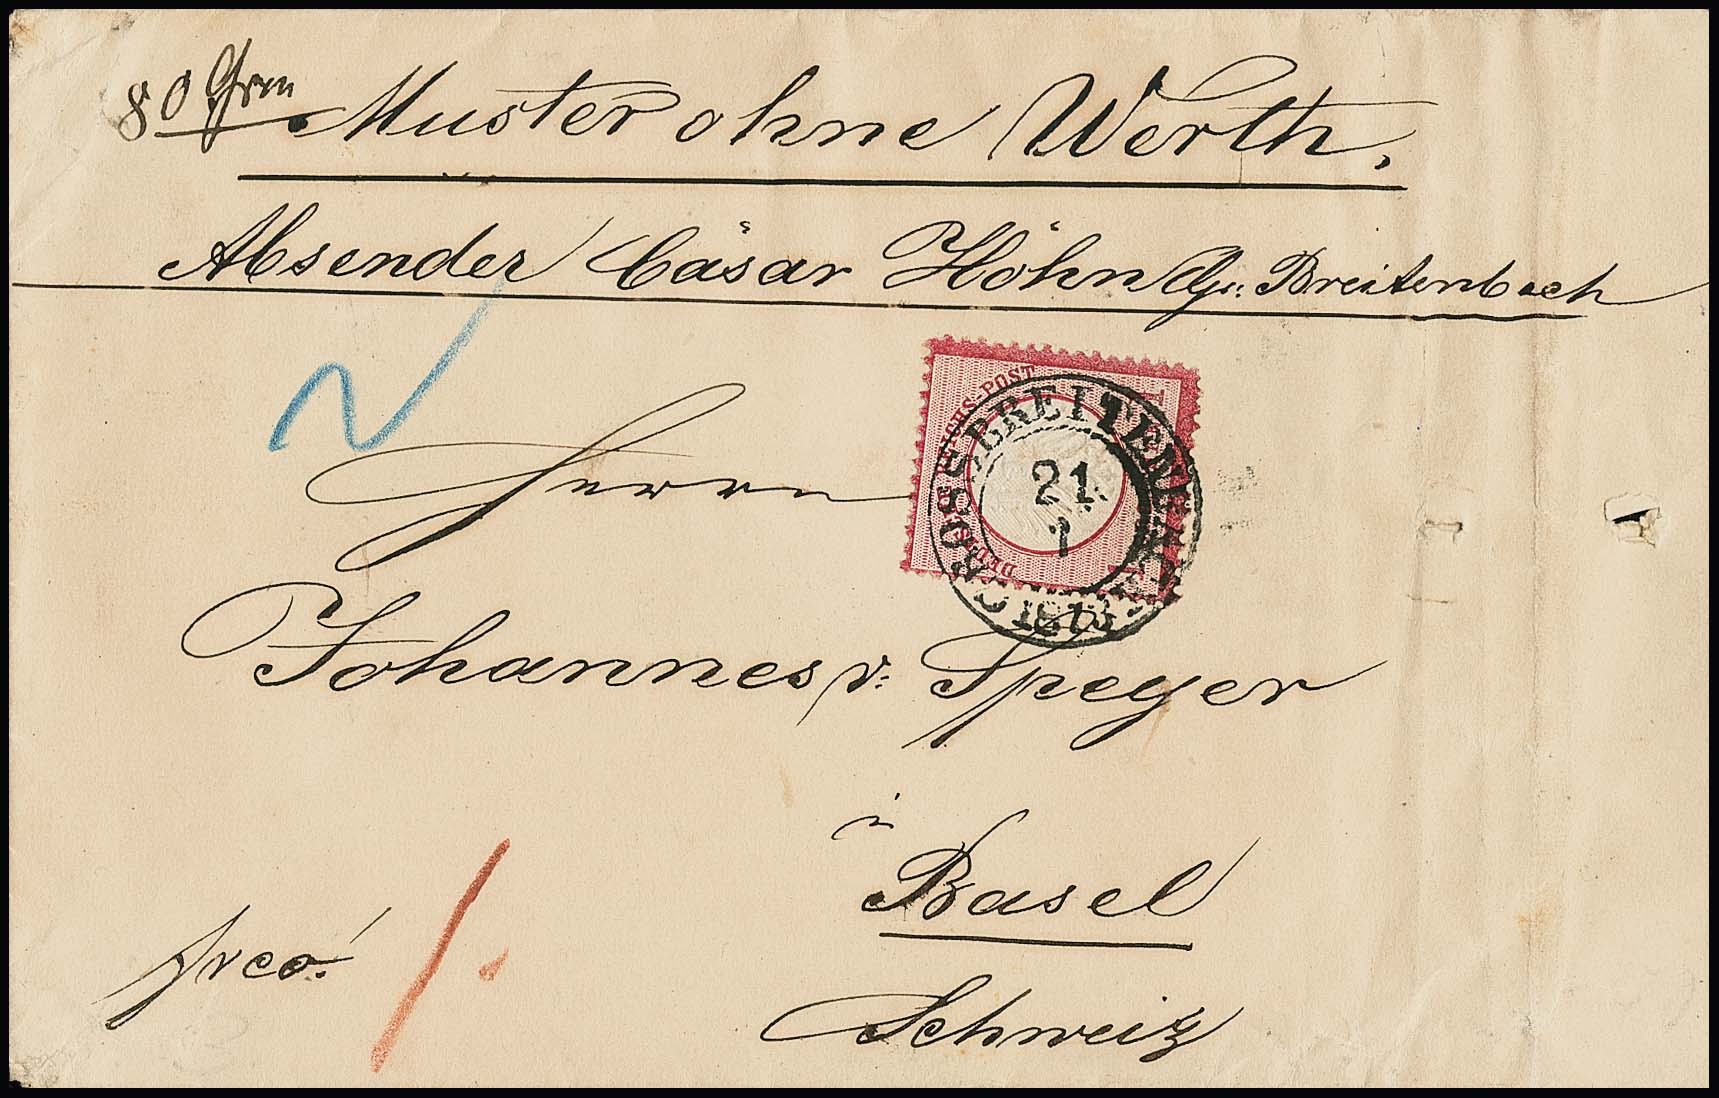 80 Grm Muster ohne Werth.
Absender Cäsar Höhn Gr: Breitenbach
DEUTSCHE REICHS-POST
GROSSBREITENBACH
21
7
1873
Herrn
Johannes v: Speyer
in
Basel
Schweiz
frco!